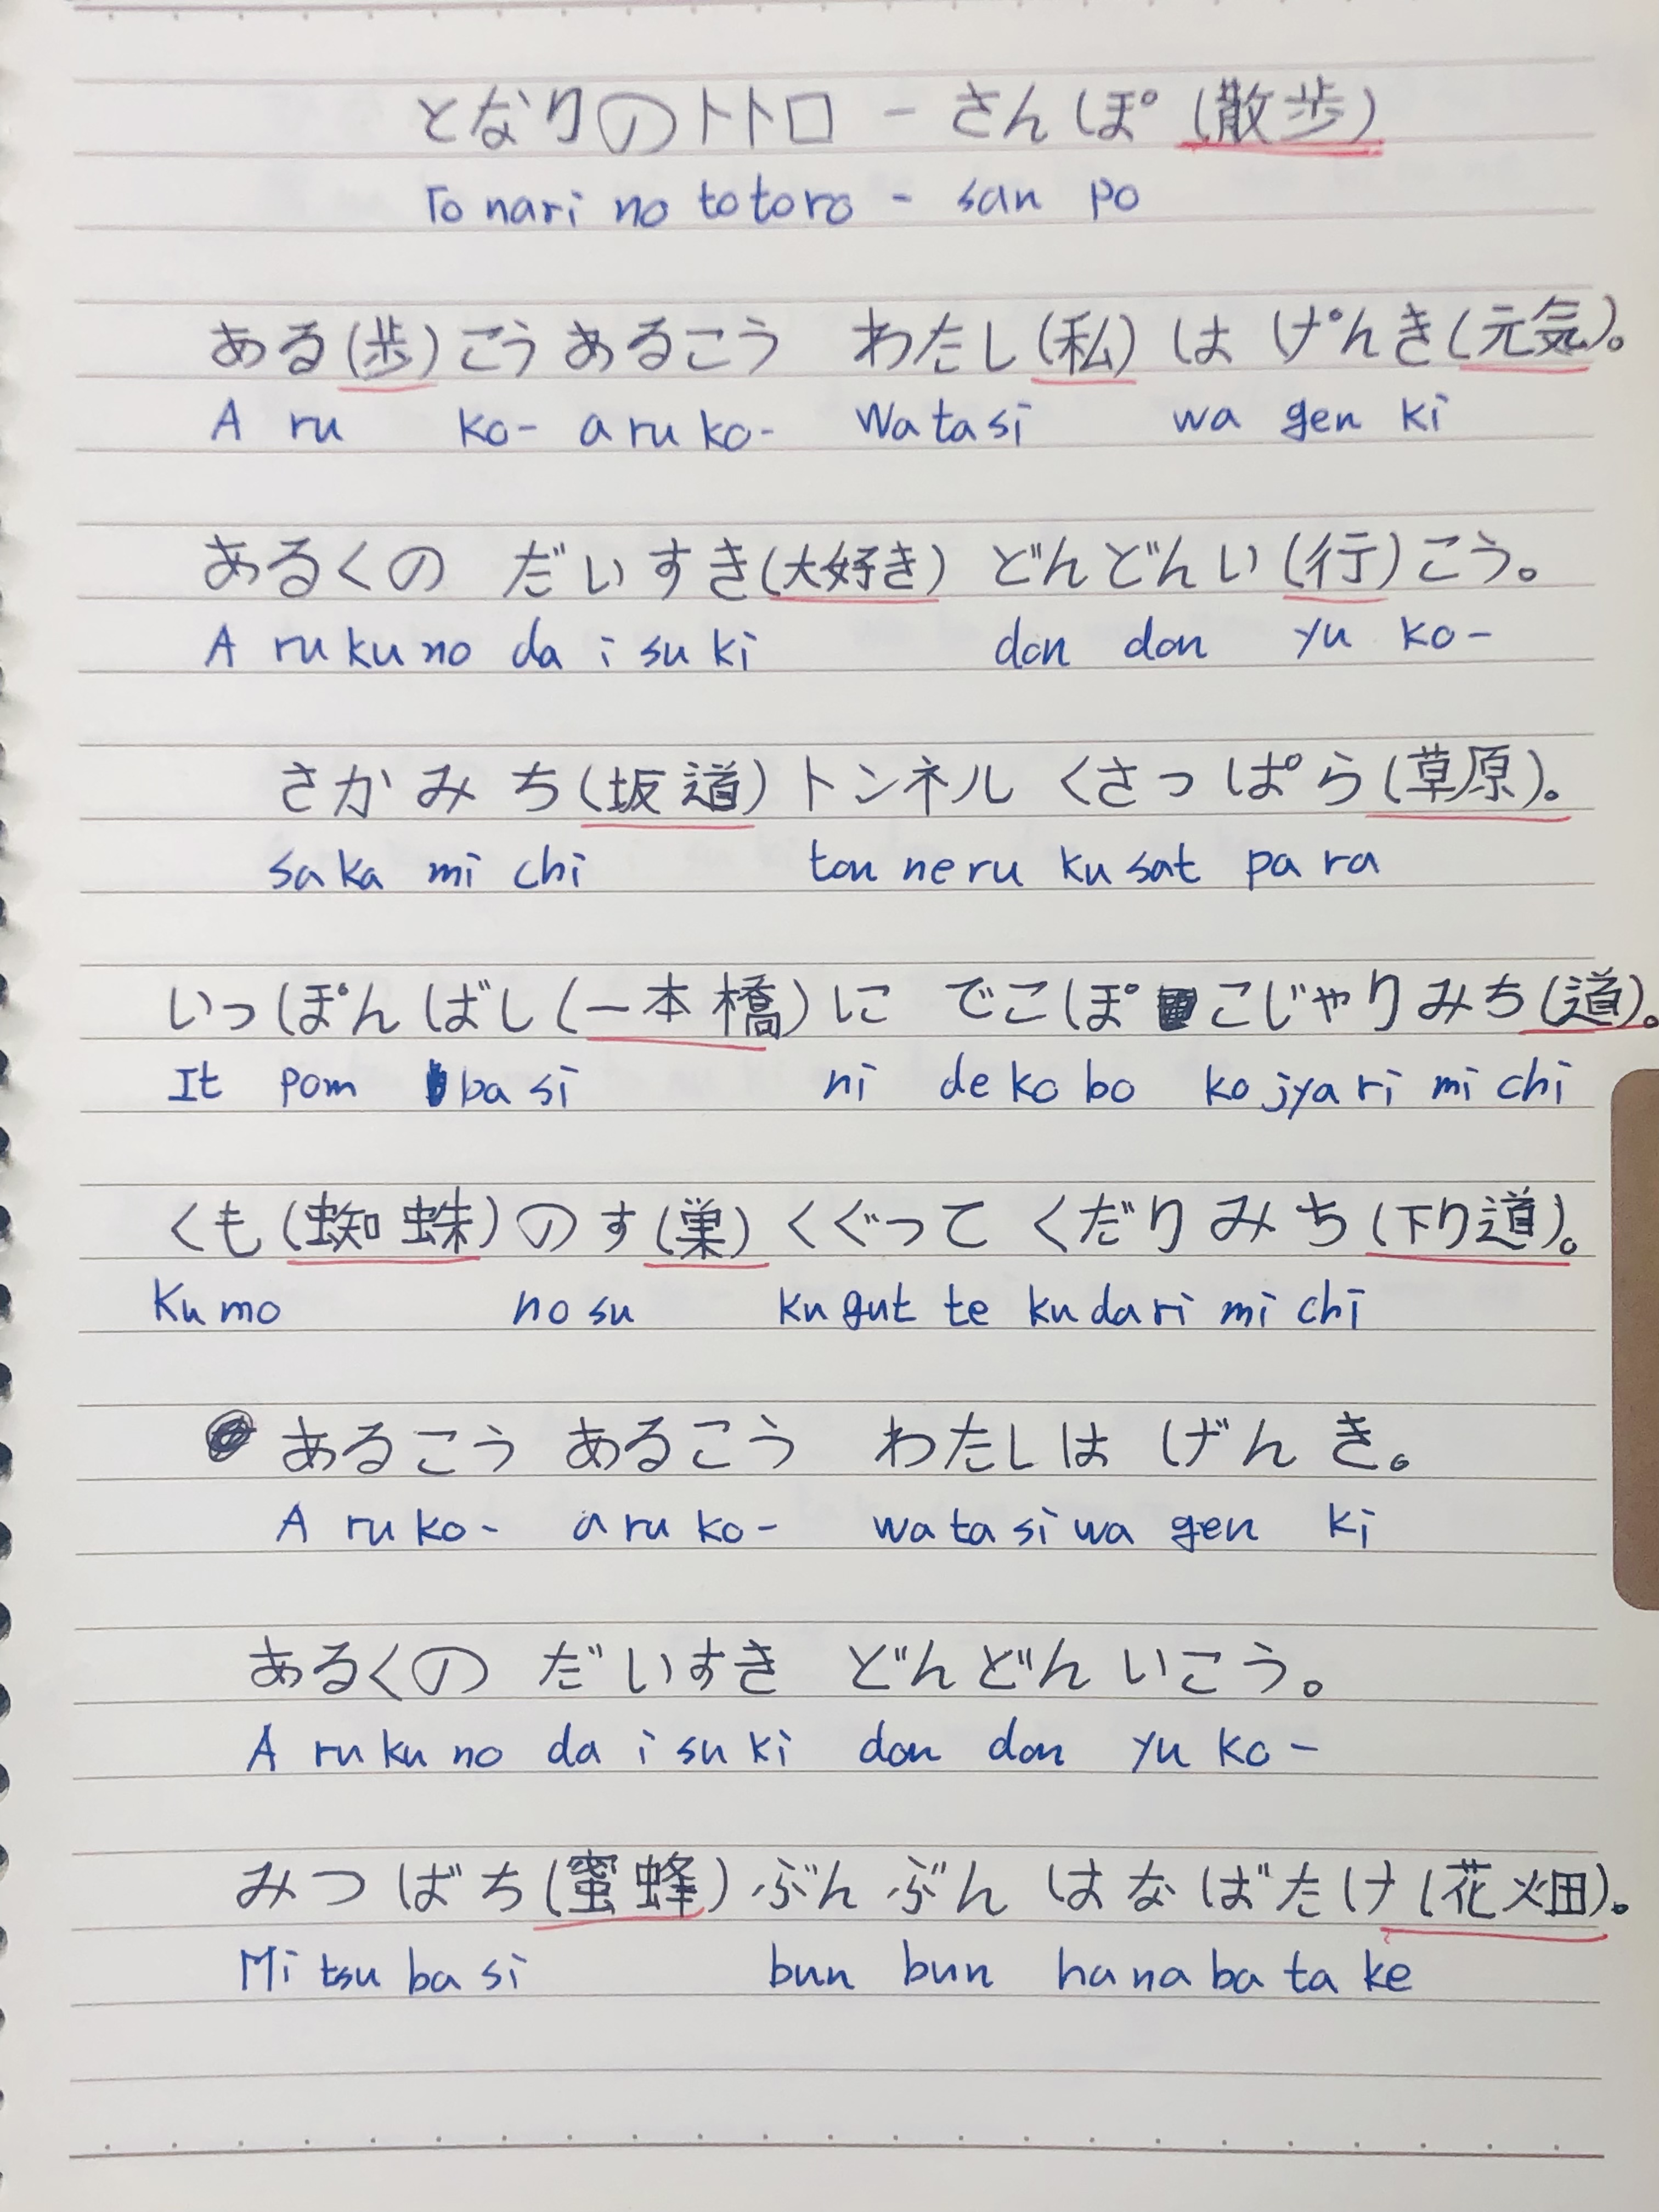 となりのトトロ - さんぽ (散歩)
To nari no totoro - san po
ある(歩)こう あるこう わたし(私)は げんき(元気)。
A ru ko- a ru ko- Wa ta si wa gen ki
あるくの だいすき(大好き) どんどんい(行)こう。
A ru ku no da i su ki don don yu ko-
さかみち(坂道)トンネル くさっぱら(草原)。
sa ka mi chi ton ne ru ku sat pa ra
いっぽんばし(一本橋)に でこぽ こじゃりみち(道)。
It pom ba si ni de ko bo ko jya ri mi chi
くも(蜘蛛)のす(巣)くぐって くだりみち(下り道)。
Ku mo no su ku gut te ku da ri mi chi
あるこう あるこう わたしは げんき。
A ru ko- a ru ko- wa ta si wa gen ki
あるくの だいすき どんどん いこう。
A ru ku no da i su ki don don yu ko-
みつばち(蜜蜂)ぶんぶん はなばたけ(花畑)。
Mi tsu ba si bun bun ha na ba ta ke